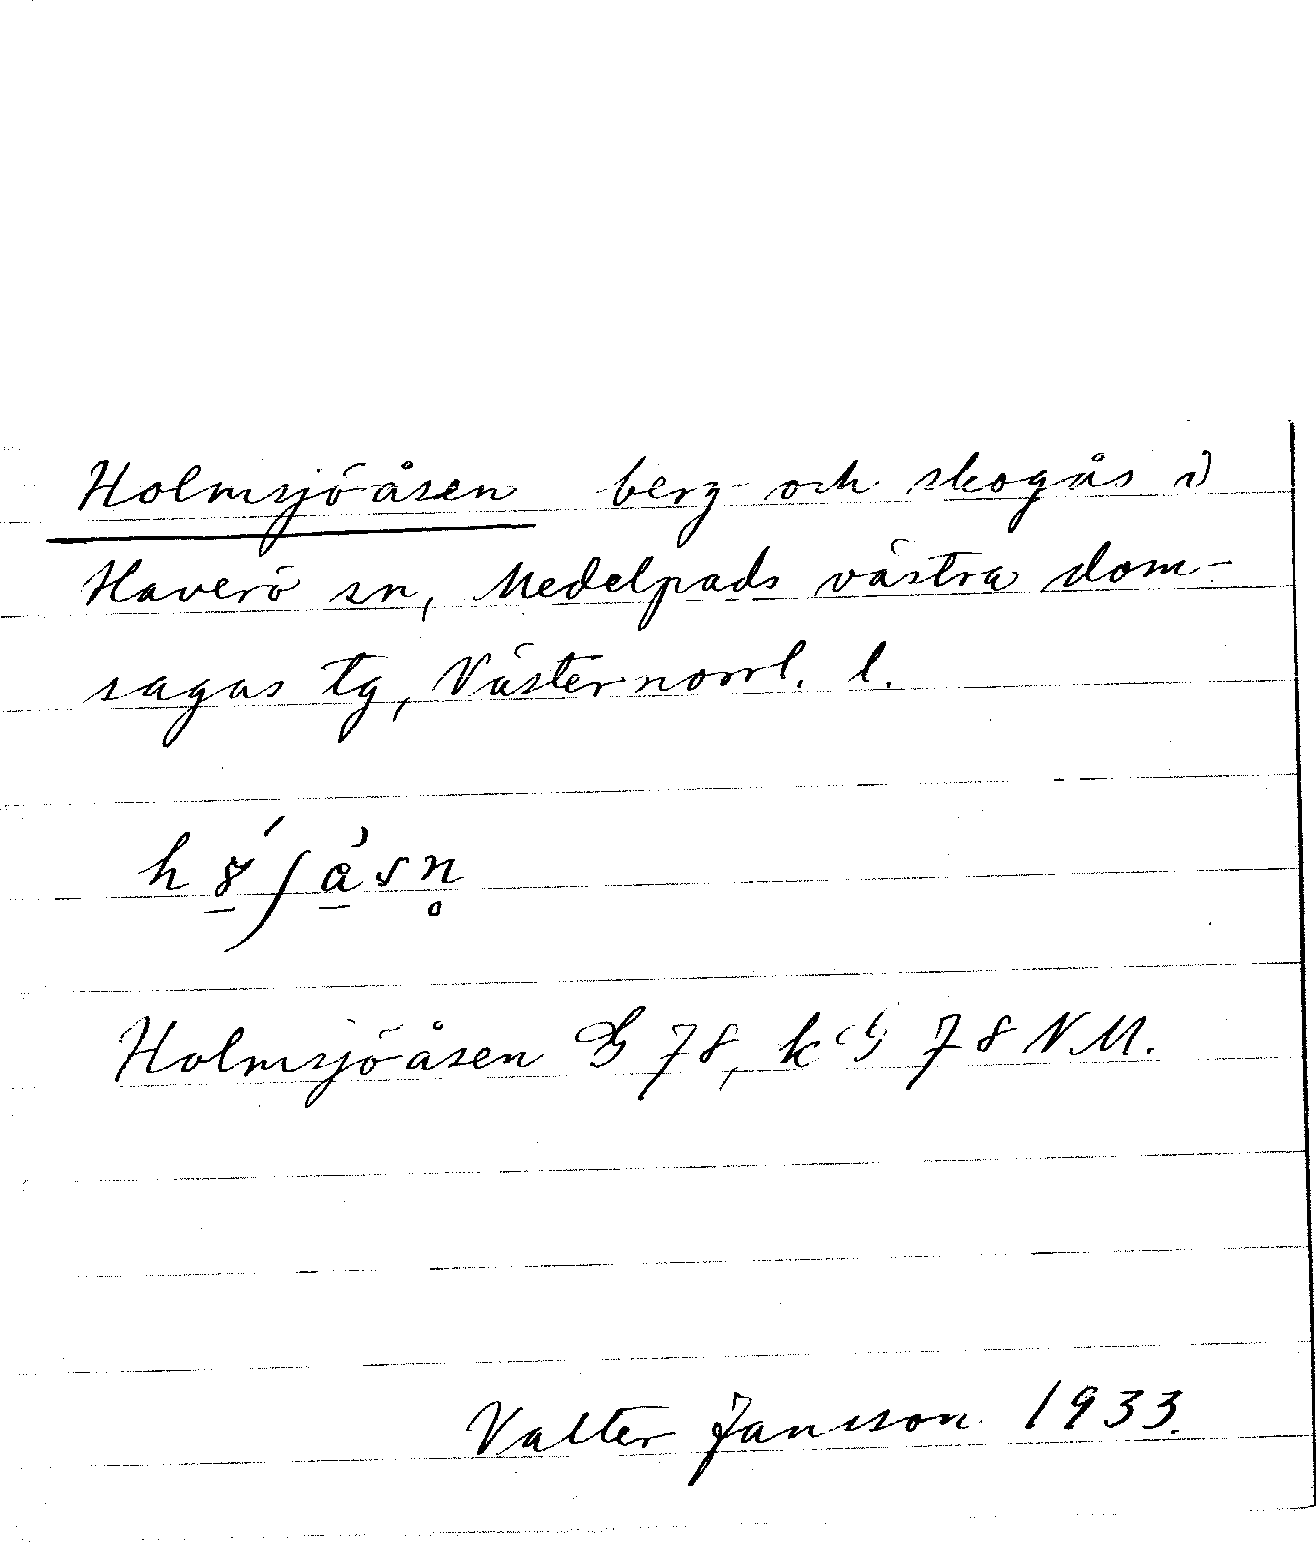 Holmsjöåsen berg och skogås i
Haverö sn, Medelpads västra dom-
sagas tg, Västernorrl. l.
Holmsjöåsen G 78, kG 78 NM.
Valter Jansson 1933.